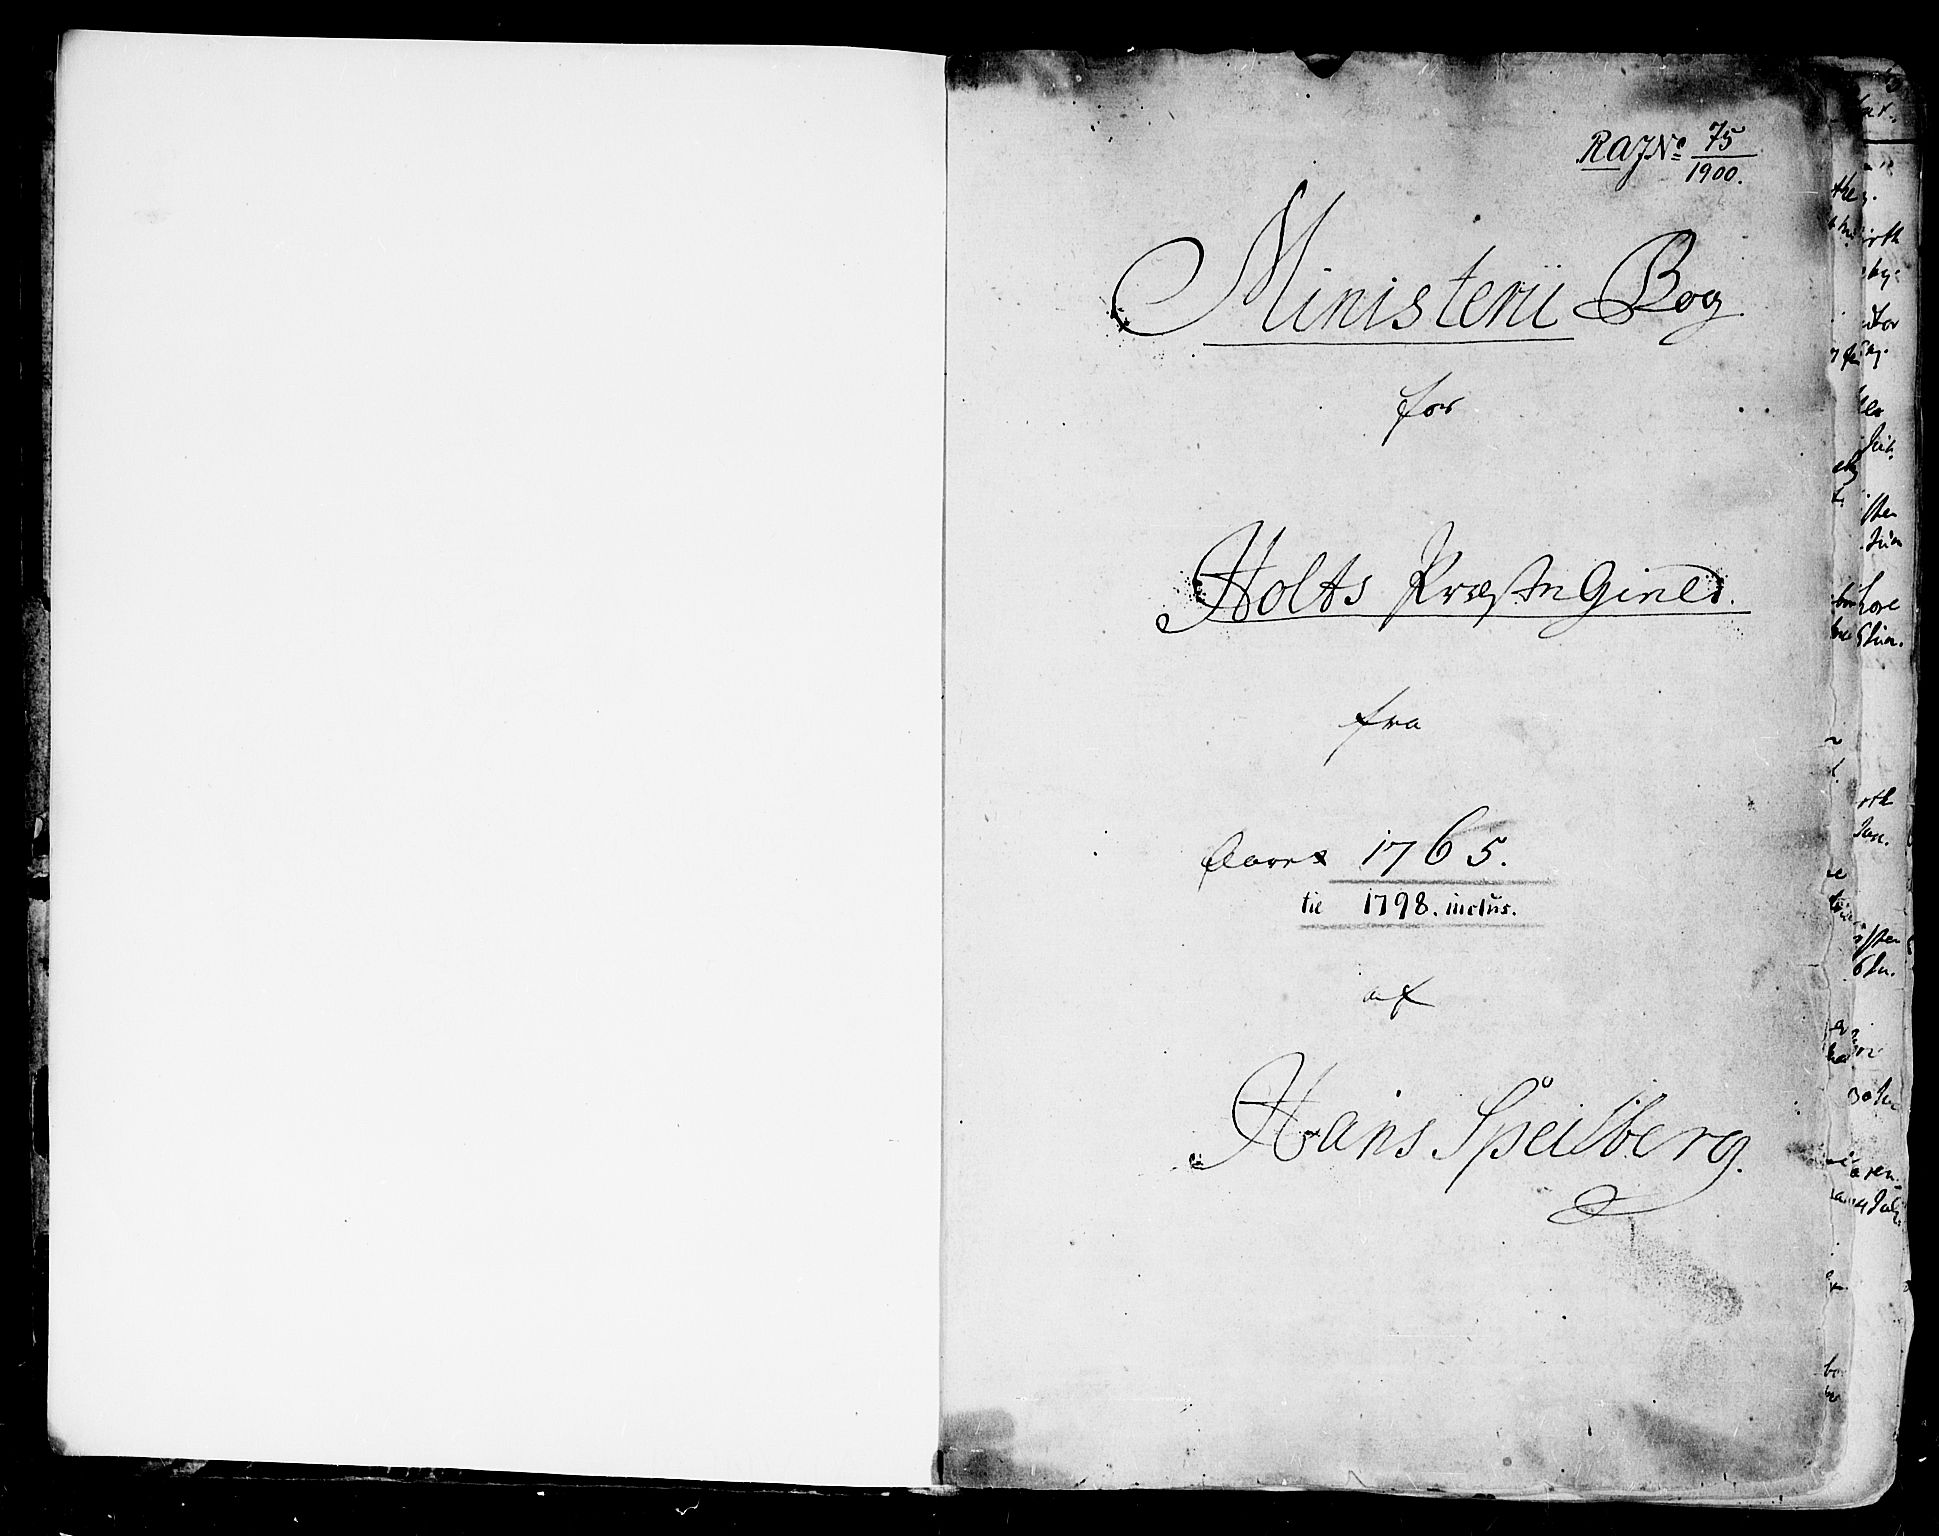 RAJNo 75/1900.
Ministerii Bog
for
Holts Præstegield.
fra
Aaret 1765.
til 1798. inclus.
af
Hans Speilberg.